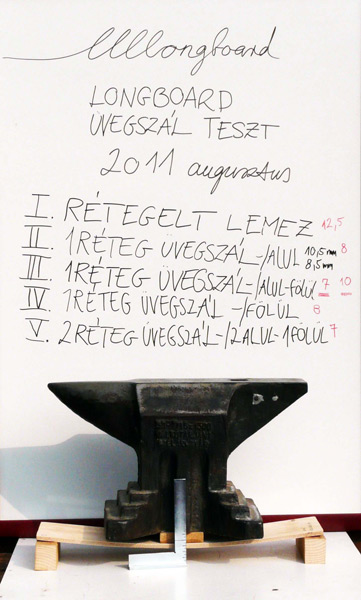 Ullllongboard
LONGBOARD
ÜVEGSZÁL TESZT
2011 augusztus
I. RÉTEGELT LEMEZ 12,5
II. 1RÉTEG ÜVEGSZÁL-/ALUL 10,5 mm 8
8,5mm
III. 1RÉTEG ÜVEGSZÁL-/ALUL-fölül 7 10
IV. 1RÉTEG ÜVEGSZÁL -/FÖLÜL 8
V. 2RÉTEG ÜVEGSZÁL-/2ALUL-1FÖLÜL 7